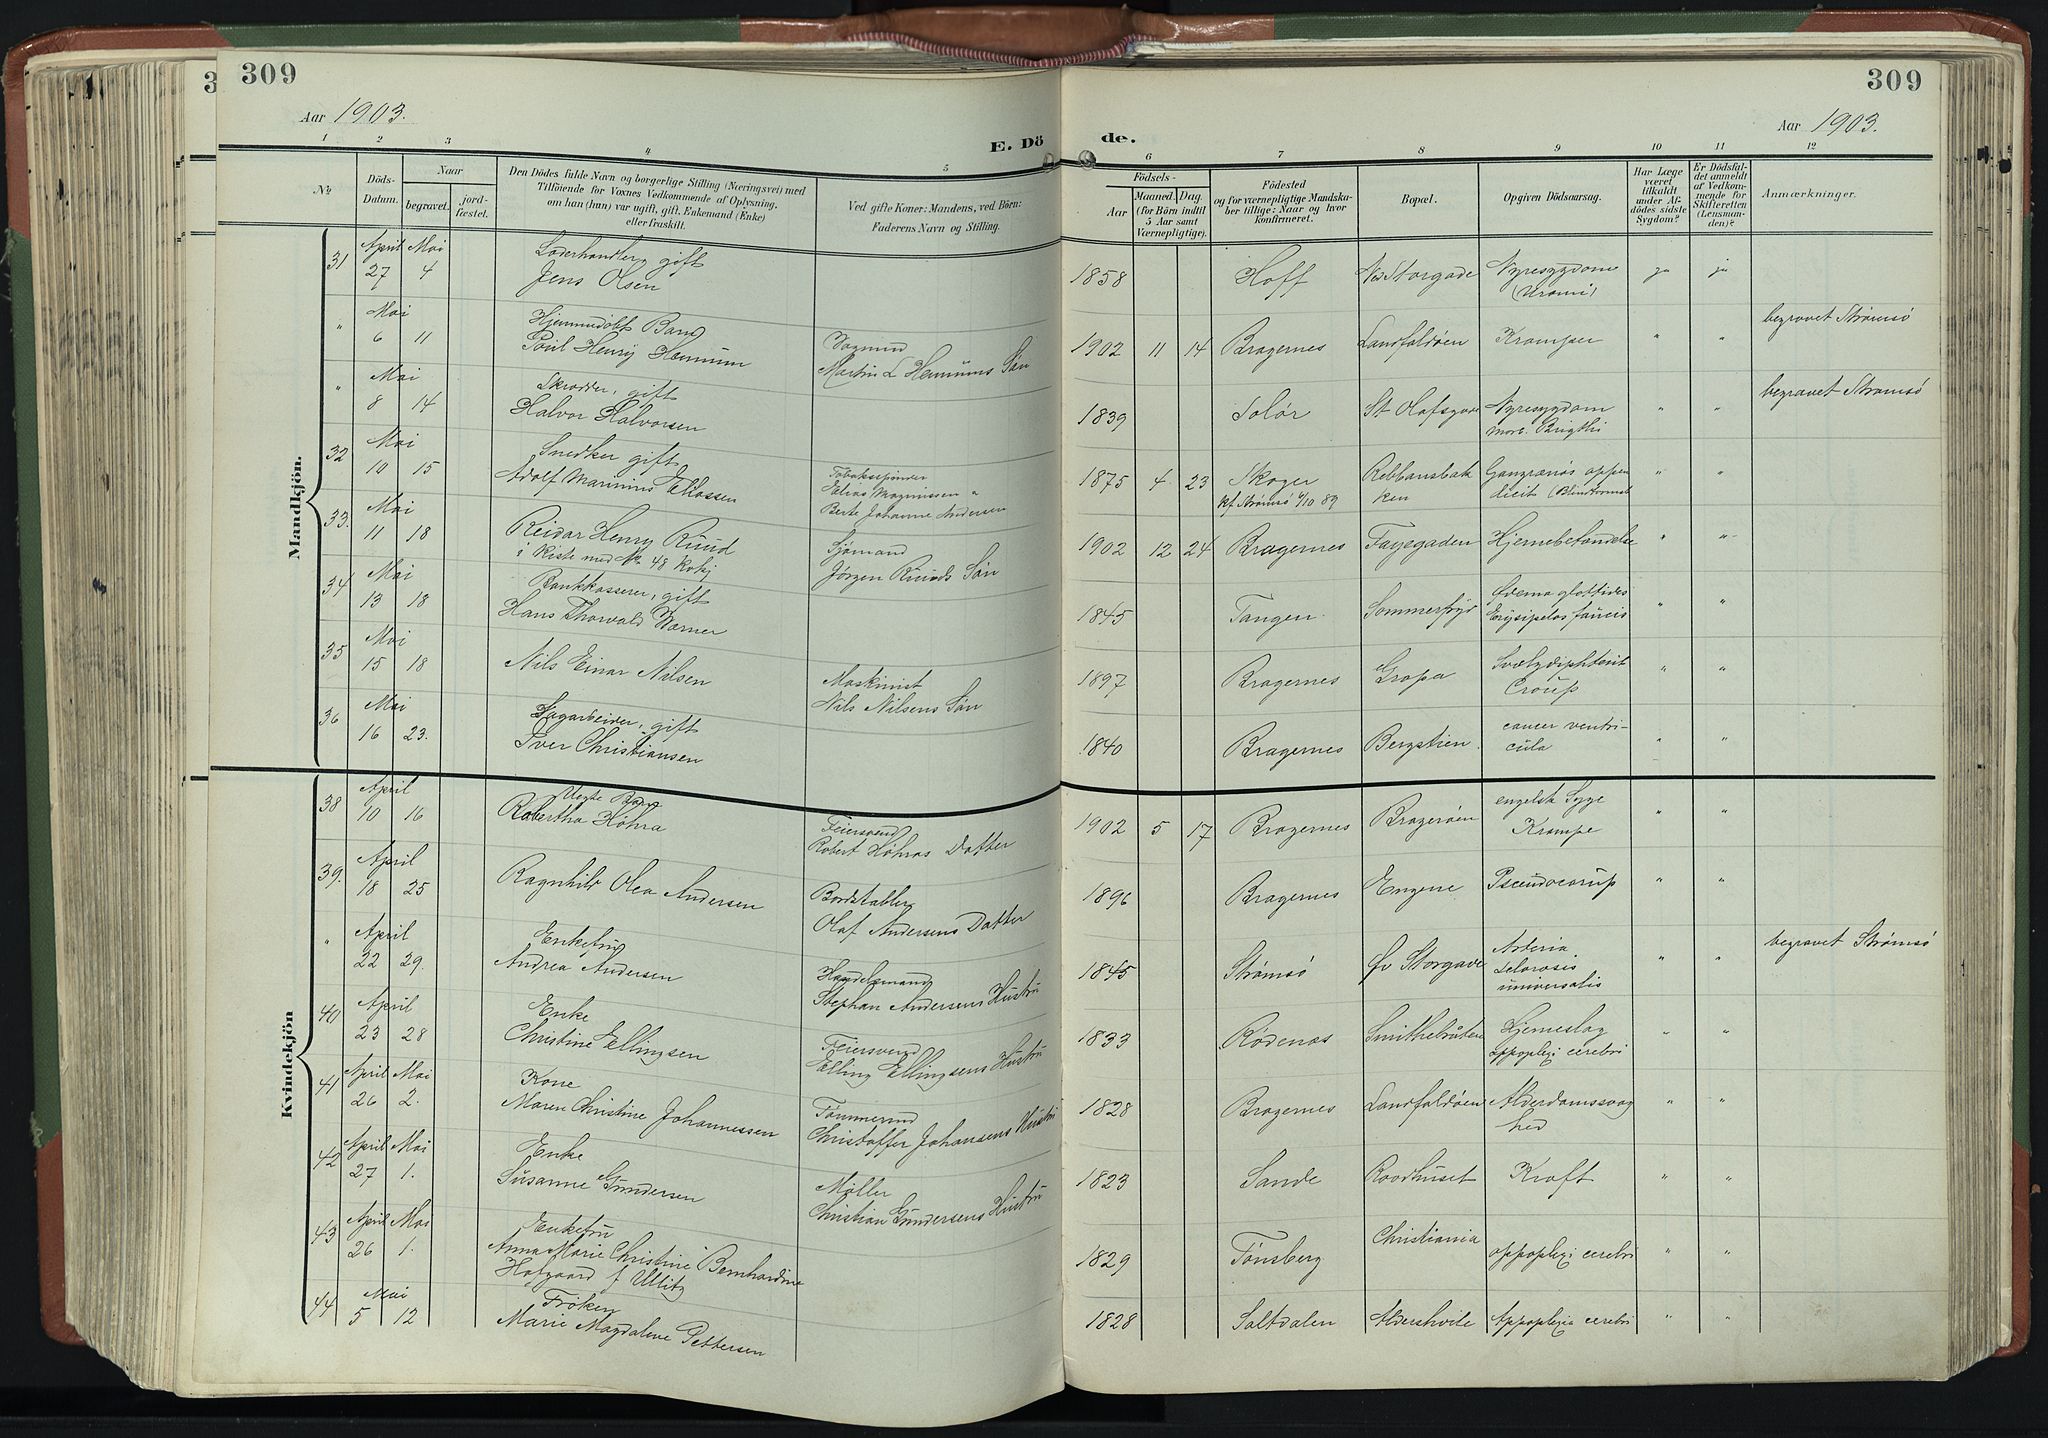 309
309
Aar 1903.
Aar 1903.
E. Dö
de.
1 2 3 4 5 6 7 8 9 10 11 12
No.
Döds-Datum.
Naar
begravet.
jord-fæstet.
Den Dödes fulde Navn og borgerlige Stilling (Næringsvei) med
Tilföiende for Voxnes Vedkommende af Oplysning,
om han (hun) var ugift, gift, Enkemand (Enke)
eller fraskilt.
Ved gifte Koner: Mandens, ved Börn:
Faderens Navn og Stilling.
Födsels-
Aar
Maaned. Dag.
(for Börn indtil
5 Aar samt
Værnepligtige).
Födested
og for værnepligtige Mandska-
ber tillige: Naar og hvor
konfirmeret.
Bopæl.
Opgiven Dödsaarsag.
Har Læge
været
tilkaldt
under Af-
dödes sidste
Sygdom?
Er Dödsfal-
det anmeldt
af Vedkom-
mende for
Skifteretten
(Lensman-
den)?
Anmærkninger.
Mandkjön.
31 April 27 Mai 4 Læderhandler, gift
Jens Olsen
1858 Hoff Ned Storgade Nyresygdom
(Uræmi) ja ja
" Mai 6 11 Hjemmedöbt Barn
Poul Henry Hemmum
Martin L Hemmums Sön
1902 11 14 Bragernes Landfaldöen Kramper " " begravet Strömsö
" Mai 8 14 Skrædder, gift
Halvor Halvorsen
1839 Solör St Olafsgade Nyresygdom
morb. Brigthii " " begravet Strømsö
32 Mai 10 15 Snedker gift
Adolf Marinius Eliassen
Tobaksspinder
Elias Magnussen "
Berte Johanne Andersen
1875 4 23 Skoger
kf Strømsö 6/10 89
Rebbansbak
ken
Gangrænös appen
dicit (Blindtarmsb " "
33. Mai 11 18 Reidar Henry Ruud
i Kiste med No 48 Kvkj
Sjømand
Jørgen Ruuds Sön
1902 12 24 Bragernes Fayegaden Hjernebetændelse " "
34 Mai 13 18 Bankkasserer, gift
Hans Thorwald Werner
1845 Tangen Sommerfryd Ødema glottides
Erysipelas faucis " "
35 Mai 15 18 Nils Einar Nilsen
Maskinist
Nils Nilsens Sön
1897 Bragernes Gropa Svælgdiphterit
Croup " "
36 Mai 16 23. Sagarbeider, gift
Iver Christiansen
1840 Bragernes Bergstien cancer ventri-
cula " "
Kvindekjön
38 April 10 16 Uegte Barn
Robertha Höhra
Feiersvend
Robert Höhras Datter
1902 5 17 Bragernes Bragerøen engelsk Syge
Krampe " "
39. April 18 25 Ragnhild Olea Andersen
Bordstabler
Olaf Andersens Datter
1896 Bragernes Engene Pseudocroup " "
" April 22 29. Enkefru
Andrea Andersen
Handelsmand
Stephan Andersens Hustru
1845 Strømsö Øv Storgade Arteria
sclerosis
universalis " " begravet Strømsö
40 April 23 28 Enke
Christine Ellingsen
Feiersvend
Elling Ellingsens Hustru
1833 Rødenæs Smithebråten Hjerneslag
appoplexi cerebri " "
41 April 26 Mai 2. Kone
Maren Christine Johannessen
Tømmermd
Christoffer Johansens Hustru
1828 Bragernes Landfaldöen Alderdomssvag
hed " "
42 April 27 Mai 1. Enke
Susanne Gundersen
Møller
Christian Gundersens Hustru
1823 Sande Raadhuset Kræft " "
43 April 26 Mai 1. Enkefru
Anna Marie Christine Bernhardine
Hofgaard f Ullitz
1829 Tønsberg Christiania appoplexi cerebri " "
44 Mai 5 12 Frøken
Marie Magdalene Pettersen
1828 Saltdalen Aldershvile Appoplexia cerebri " "